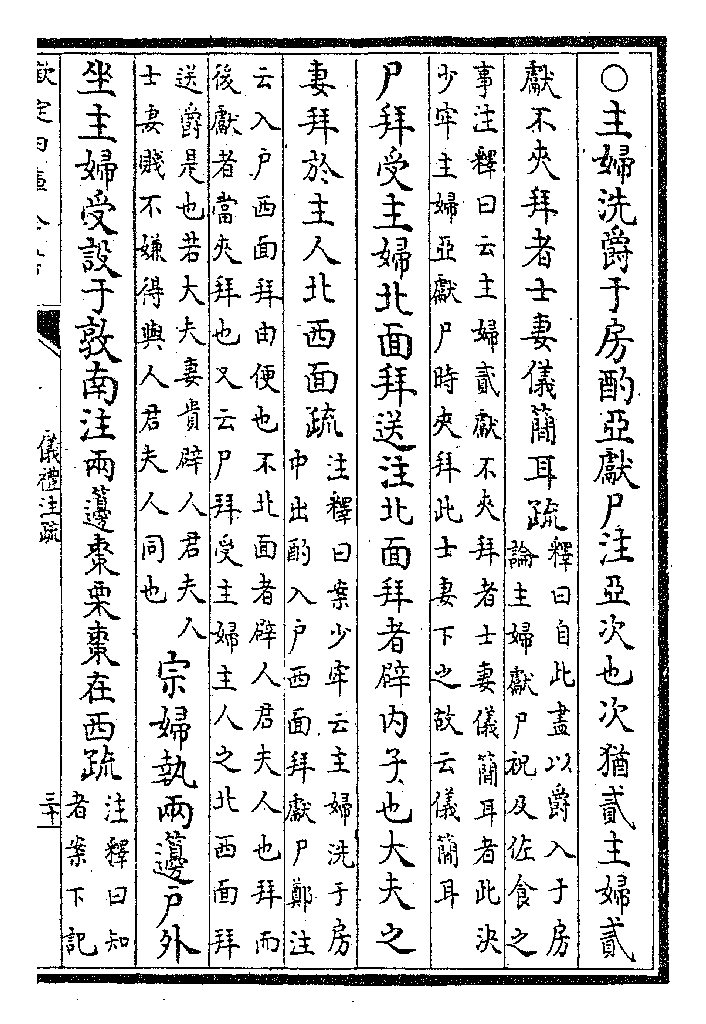 ○主婦洗爵于房酌亞獻尸注亞次也次猶貳主婦貳
獻不夾拜者士妻儀簡耳疏
釋曰自此盡以爵入于房
論主婦獻尸祝及佐食之
事注釋曰云主婦貳獻不夾拜者士妻儀簡耳者此決
少牢主婦亞獻尸時夾拜此士妻下之故云儀簡耳
尸拜受主婦北面拜送注北面拜者辟内子也大夫之
妻拜於主人北西面疏
注釋曰案少牢云主婦洗于房
中出酌入户西面拜獻尸鄭注
云入户西面拜由便也不北面者辟人君夫人也拜而
後獻者當夾拜也又云尸拜受主婦主人之北西面拜
送爵是也若大夫妻貴辟人君夫人
士妻賤不嫌得與人君夫人同也
宗婦執兩籩户外
坐主婦受設于敦南注兩籩棗栗棗在西疏
注釋曰知
者案下記
欽定四庫全書
儀禮注疏
三十